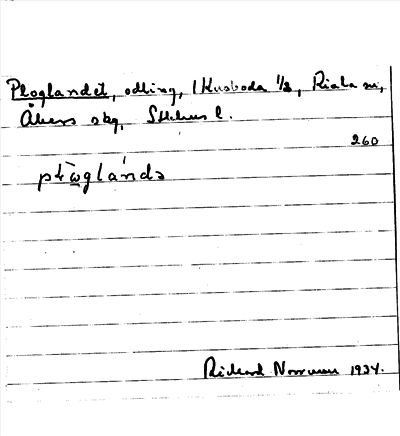 Ploglandet, odling, 1 Husboda 1/2, Riala sn,
Åkers skg, Sthlms l.
260
pɫωglándə
Richard Norrman 1934.